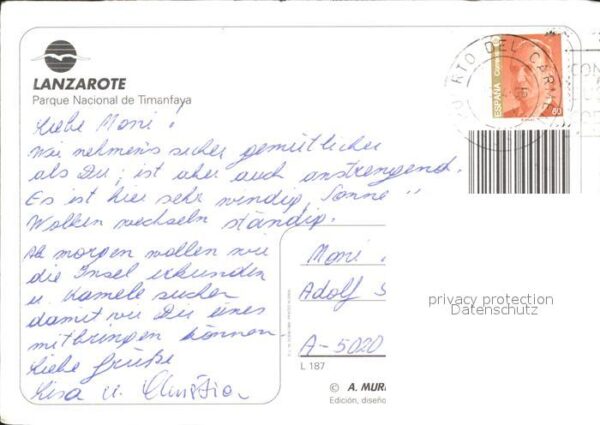 LANZAROTE
Parque Nacional de Timanfaya
Liebe Moni!
Wir nehmen's sicher gemütlicher
als Du, ist aber auch anstrengend.
Es ist hier sehr windig, Sonne u.
Wolken wechseln ständig.
Ab morgen wollen wir
die Insel erkunden
u. Kamele suchen
damit wir Dir eines
mitbringen können.
Liebe Grüße
Lisa u. Christian
PUERTO DEL CARMEN
ESPAÑA
Correos
60
Moni
Adolf S
A-5020
privacy protection
Datenschutz
L 187
© A. MUR
Edición, diseño